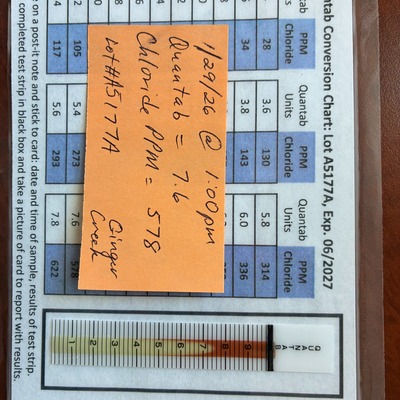 ntab Conversion Chart: Lot A5177A, Exp. 06/2027
PPM Chloride Quantab Units PPM Chloride Quantab Units PPM Chloride
28 3.6 130 5.8 314
34 3.8 143 6.0 336
1/29/26 @ 1:00pm
Quantab = 7.6
Chloride PPM = 578
Lot#A5177A
Ginger
Creek
105 5.4 273 7.6 578
117 5.6 293 7.8 622
on a post-it note and stick to card: date and time of sample, results of test strip.
completed test strip in black box and take a picture of card to report with results.
QUANTAB
9
8
7
6
5
4
3
2
1